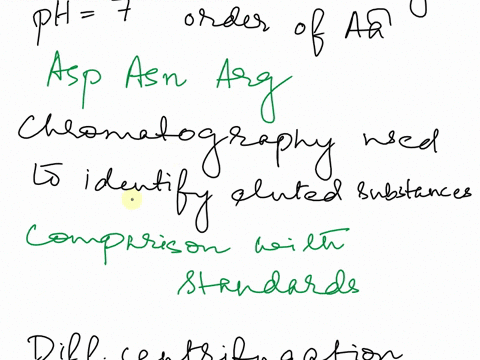 pH = 7 order of Aa
Asp Asn Arg
Chromatography used
to identify eluted substances
Comparison with
standards
Diff. centrifugation